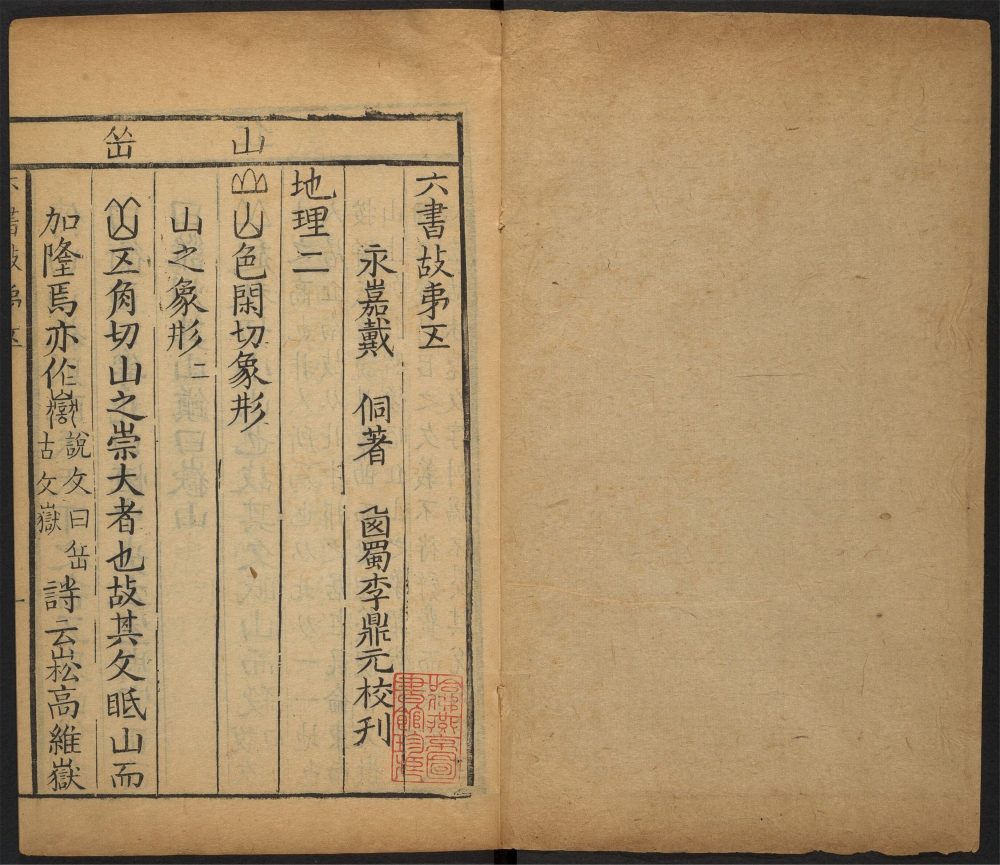 山
岳
六書故弟五
永嘉戴 侗著 西蜀李鼎元校刊
地理二
山山色閑切象形
山之象形二
岳五角切山之崇大者也故其文眡山而
加隆焉亦作嶽說文曰岳古文嶽詩云崧高維嶽
六書故弟五
一
哈佛燕京圖
書館珍